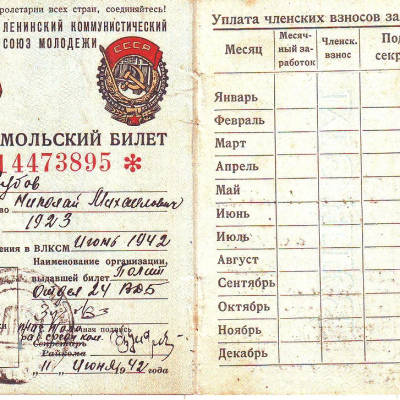 ролетарии всех стран, соединяйтесь!
ЛЕНИНСКИЙ КОММУНИСТИЧЕСКИЙ
СОЮЗ МОЛОДЕЖИ
СССР
МОЛЬСКИЙ БИЛЕТ
14473895 *
убов
во Николай Михайлович
1923
ения в ВЛКСМ Июнь 1942
Наименование организации,
выдавшей билет Полит
Отдел 24
ная подпись
Секретарь
Райкома
"11" Июня 1942 года
Уплата членских взносов за
Месяц
Месяч-
ный за-
работок
Членск.
взнос
По
секр
Январь
Февраль
Март
Апрель
Май
Июнь
Июль
Август
Сентябрь
Октябрь
Ноябрь
Декабрь